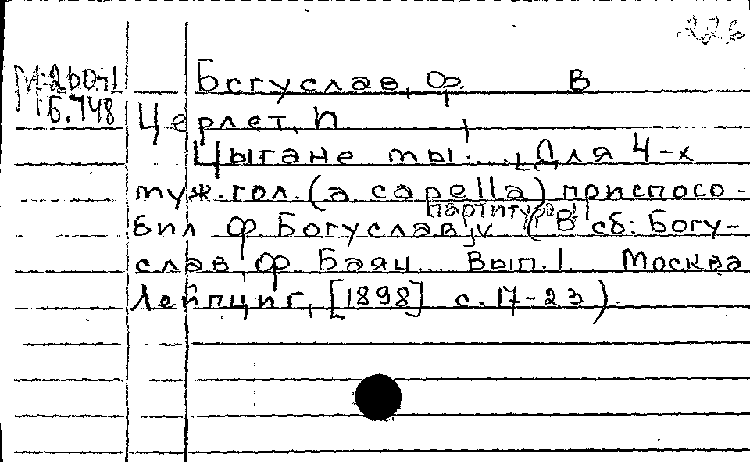 226
М 260п1
Б.748
Богуслав, Ф. В
Церлет, П
Цыгане мы... Для 4-х
муж. гол. (a capella) приспосо-
бил Ф. Богуслав, [партитура] (В сб: Богу-
слав, Ф. Баян. Вып. 1. Москва
Лейпциг, [1898] с. 17-23).